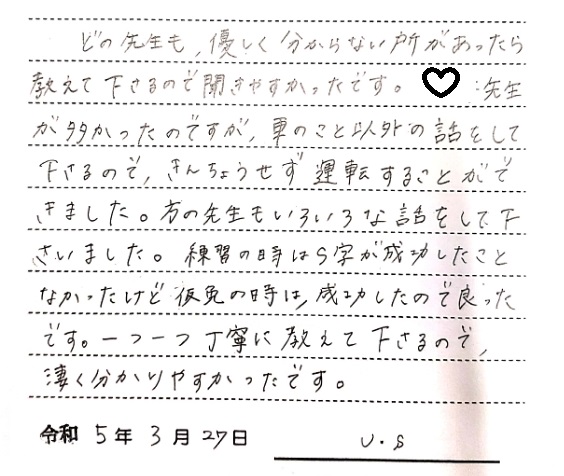 どの先生も、優しく分からない所があったら
教えて下さるので聞きやすかったです。♡先生
が多かったのですが、車のこと以外の話をして
下さるので、きんちょうせず運転することがで
きました。方の先生もいろいろな話をして下
さいました。練習の時はS字が成功したこと
なかったけど仮免の時は、成功したので良った
です。一つ一つ丁寧に教えて下さるので、
凄く分かりやすかったです。
令和 5年 3月 27日 U.S